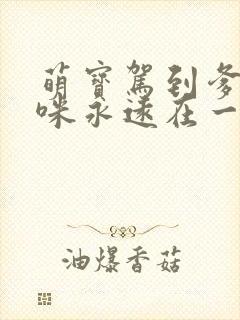 萌寶駕到爹
咪永遠在一
油爆香菇